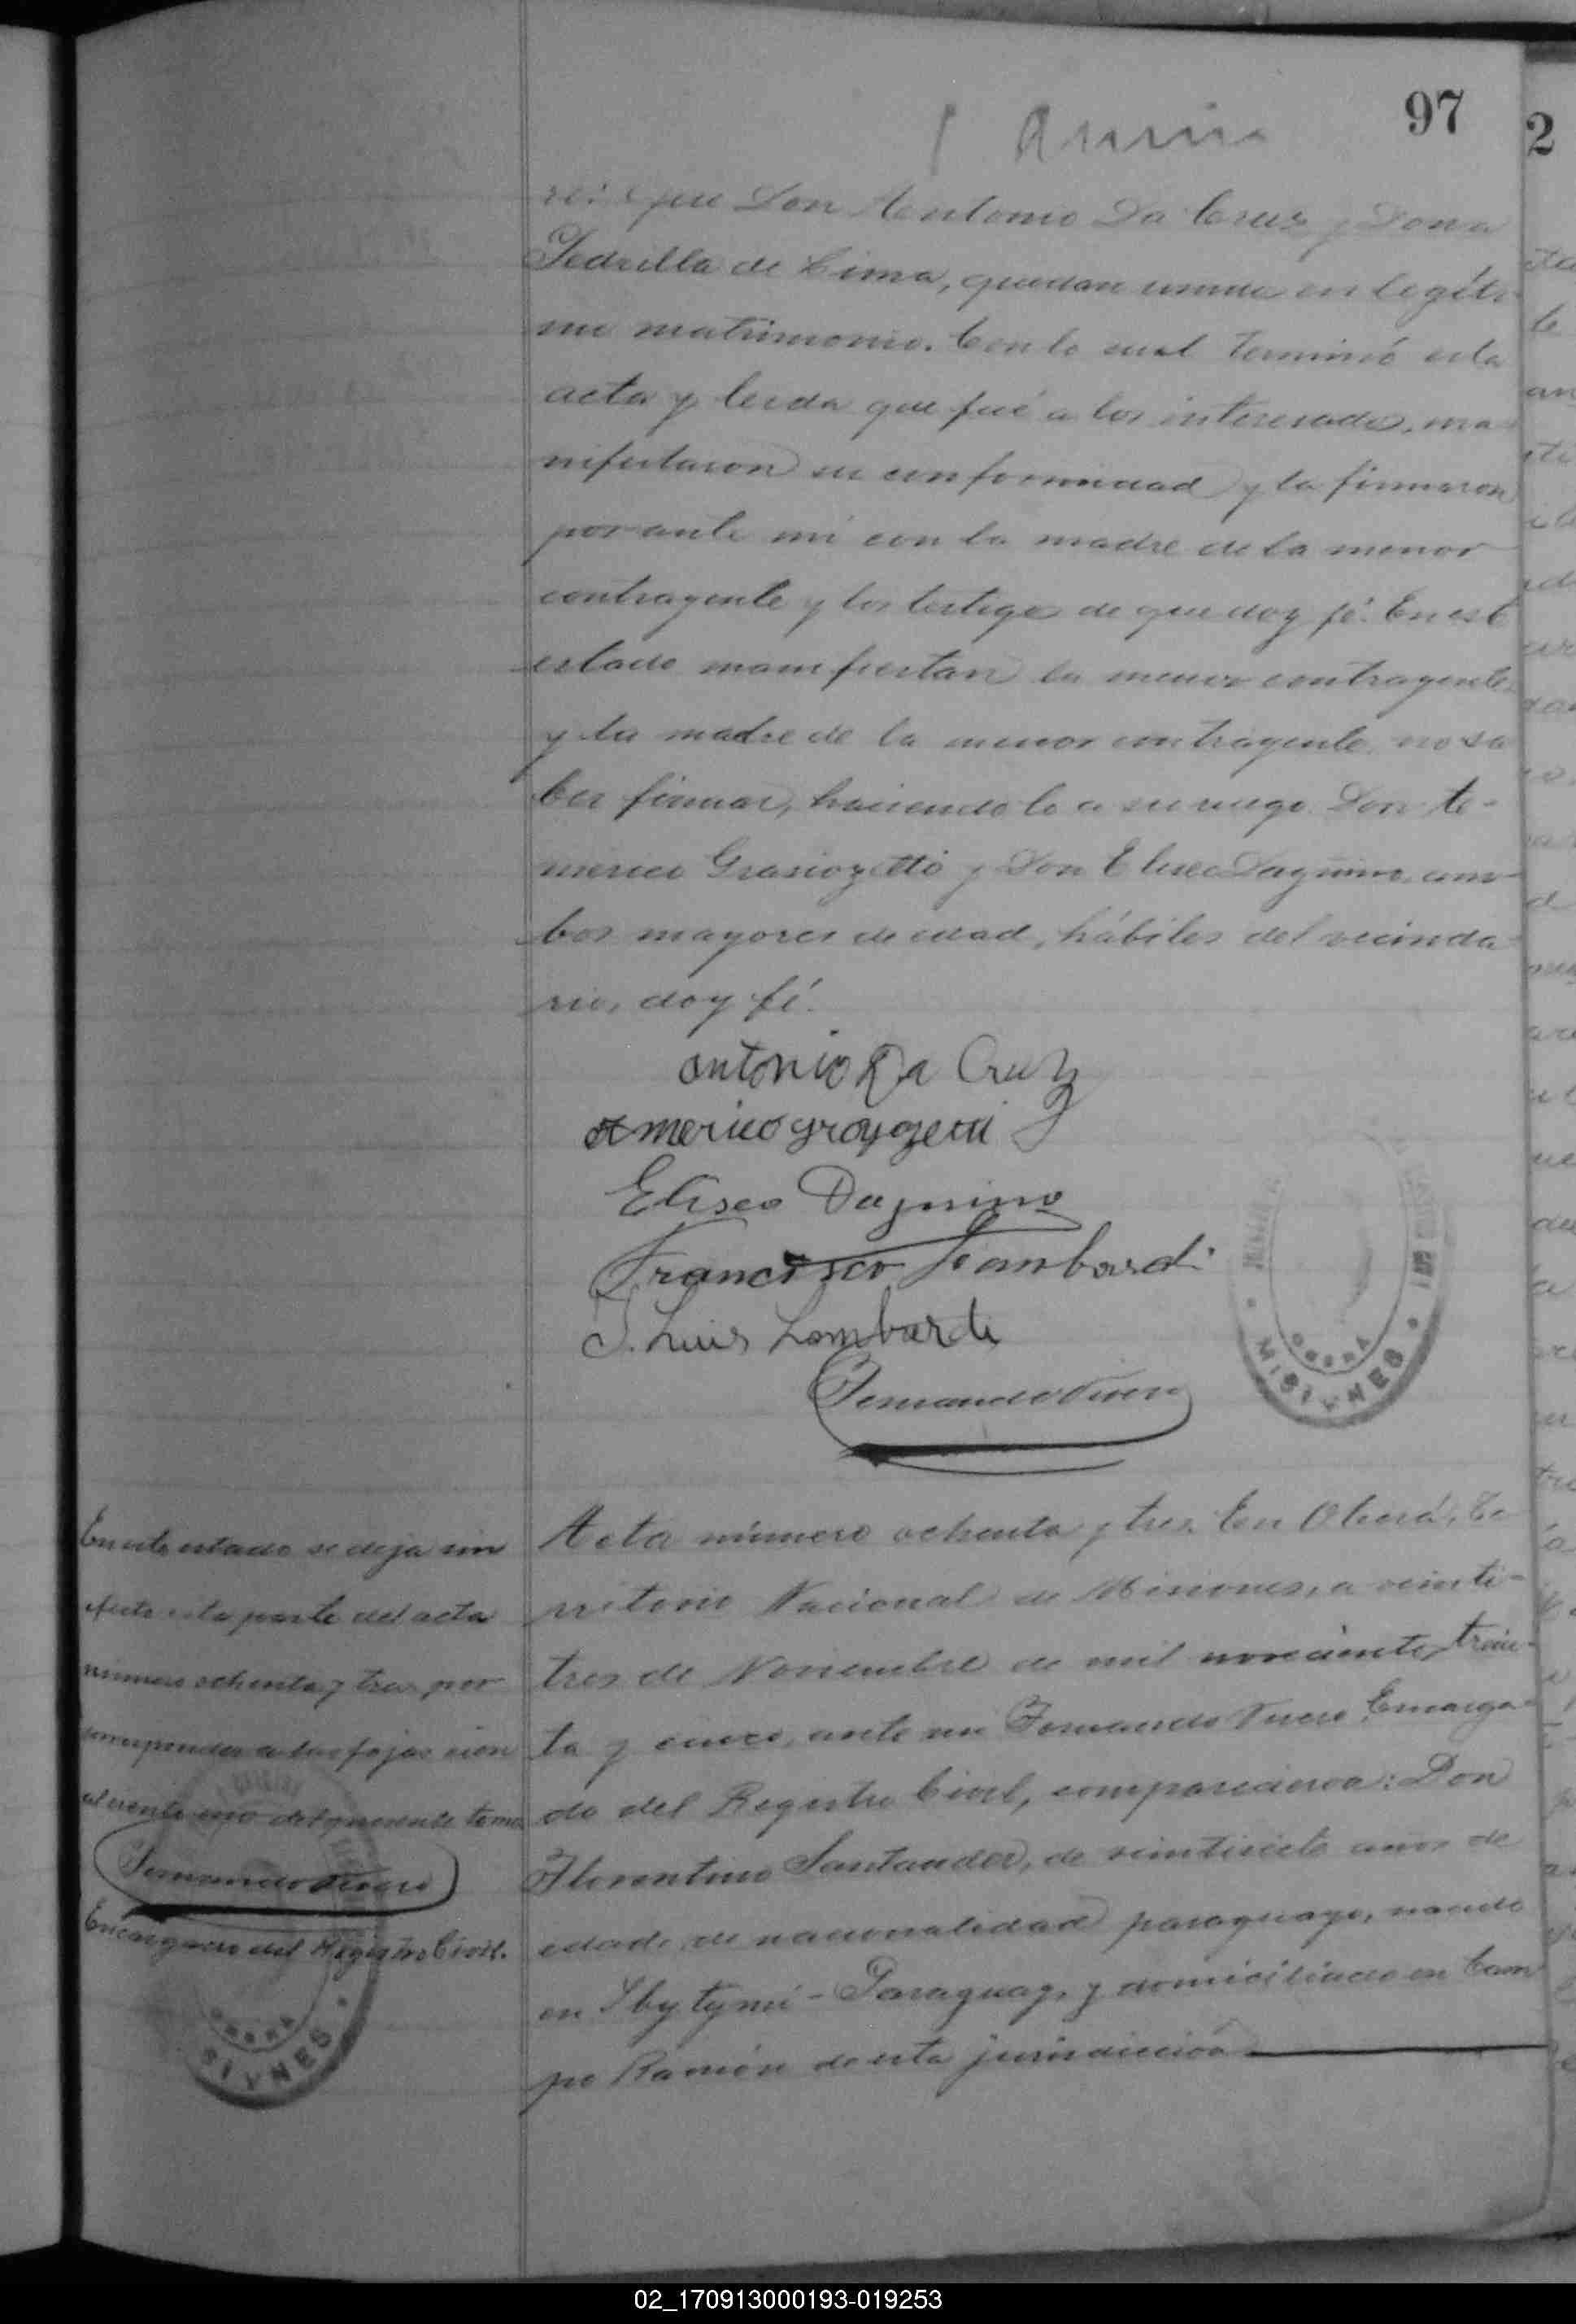 97
2
que Don Antonio Da Cruz y Dona
Pedrilla de Lima, quedan unidos en legíti-
mo matrimonio. Con lo cual terminó esta
acta y leida que fué a los interesados, ma-
nifestaron su conformidad y la firmaron
por ante mi con la madre de la menor
contrayente y los testigos de que doy fé. En este
estado manifiestan la menor contrayente
y la madre de la menor contrayente no sa
ber firmar, haciendolo a su ruego Don A-
merico y Don Eliseo Dagnino, am-
bos mayores de edad, hábiles del vecinda-
rio, doy fé.
Antonio Da Cruz
Americo
Eliseo Dagnino
Francisco Lombardi
J. Luis Lombardi
Fernando Vivero
MISIONES
OBERA
En este estado se deja sin
efecto esta parte del acta
número ochenta y tres por
corresponder a las fojas cien
al ciento uno del presente tomo
Fernando Vivero
Encargado del Registro Civil.
OBERA
MISIONES
Acta número ochenta y tres. En Oberá, Te-
rritorio Nacional de Misiones, a veinti-
tres de Noviembre de mil novecientos trein-
ta y cinco, ante mi Fernando Vivero Encarga-
do del Registro Civil, comparecieron: Don
Florentino Santander, de veintisiete años de
edad, de nacionalidad paraguayo, nacido
en Ybytymí - Paraguay, y domiciliado en Cam
po Ramón de esta jurisdicción
02_170913000193-019253